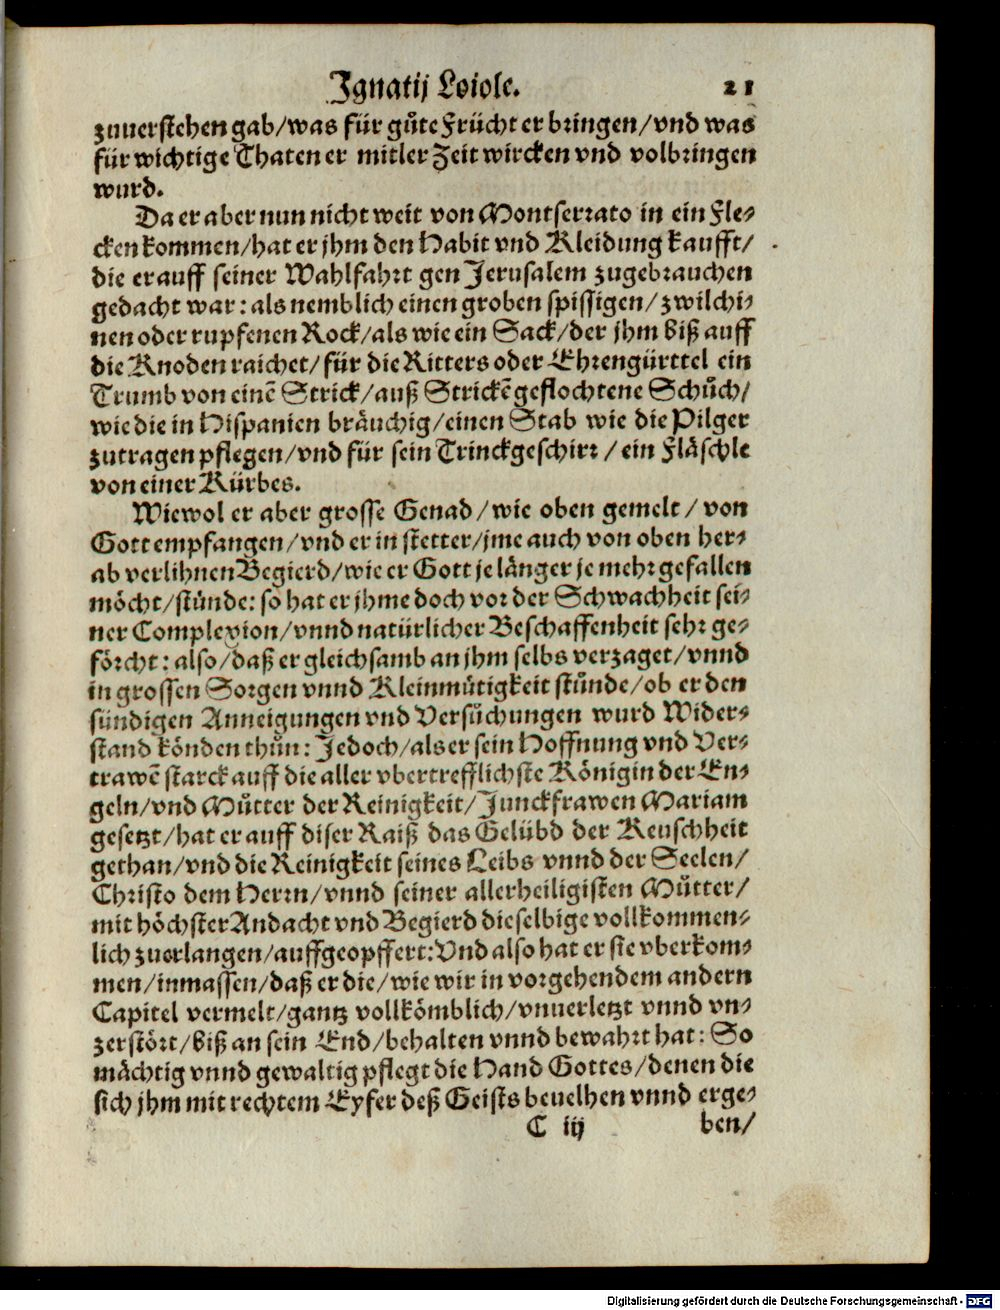 Ignatij Loiole. 21
zuuerstehen gab/was für gůte Frücht er bringen/vnd was
für wichtige Thaten er mitler Zeit wircken vnd volbringen
wurd.
Da er aber nun nicht weit von Montserrato in ein Fle-
cken kommen/hat er jhm den Habit vnd Kleidung kaufft/
die er auff seiner Wahlfahrt gen Jerusalem zugebrauchen
gedacht war: als nemblich einen groben spissigen/zwilchi-
nen oder rupfenen Rock/als wie ein Sack/der jhm biß auff
die Knoden raichet/für die Ritters oder Ehrengürttel ein
Trumb von einē Strick/auß Strickē geflochtene Schůch/
wie die in Hispanien bräuchig/einen Stab wie die Pilger
zutragen pflegen/vnd für sein Trinckgeschirr/ein Fläschle
von einer Kürbes.
Wiewol er aber grosse Genad/wie oben gemelt/von
Gott empfangen/vnd er in stetter/jme auch von oben her-
ab verlihnen Begierd/wie er Gott je länger je mehr gefallen
möcht/stünde: so hat er jhme doch vor der Schwachheit sei-
ner Complexion/vnnd natürlicher Beschaffenheit sehr ge-
förcht: also/daß er gleichsamb an jhm selbs verzaget/vnnd
in grossen Sorgen vnnd Kleinmütigkeit stůnde/ob er den
sündigen Anneigungen vnd Versůchungen wurd Wider-
stand könden thůn: Jedoch/als er sein Hoffnung vnd Ver-
trawē starck auff die aller vbertrefflichste Königin der En-
geln/vnd Můtter der Reinigkeit/Junckfrawen Mariam
gesetzt/hat er auff diser Raiß das Gelübd der Keuschheit
gethan/vnd die Reinigkeit seines Leibs vnnd der Seelen/
Christo dem Herrn/vnnd seiner allerheiligisten Můtter/
mit höchster Andacht vnd Begierd dieselbige vollkommen-
lich zuerlangen/auffgeopffert: Vnd also hat er sie vberkom-
men/inmassen/daß er die/wie wir in vorgehendem andern
Capitel vermelt/gantz vollkömblich/vnuerletzt vnnd vn-
zerstört/biß an sein End/behalten vnnd bewahrt hat: So
mächtig vnnd gewaltig pflegt die Hand Gottes/denen die
sich jhm mit rechtem Eyfer deß Geists beuelhen vnnd erge-
C iij ben/
Digitalisierung gefördert durch die Deutsche Forschungsgemeinschaft - DFG